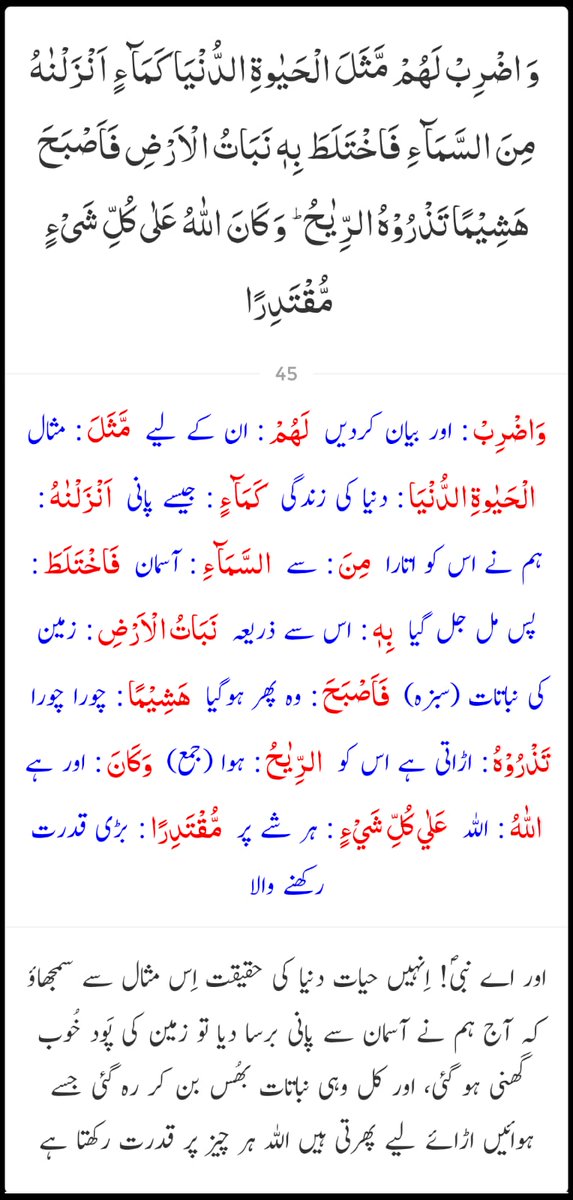 وَ اضْرِبْ لَهُمْ مَّثَلَ الْحَيٰوةِ الدُّنْيَا كَمَآءٍ اَنْزَلْنٰهُ
مِنَ السَّمَآءِ فَاخْتَلَطَ بِهٖ نَبَاتُ الْاَرْضِ فَاَصْبَحَ
هَشِيْمًا تَذْرُوْهُ الرِّيٰحُ ؕ وَ كَانَ اللّٰهُ عَلٰى كُلِّ شَىْءٍ
مُّقْتَدِرًا
45
وَاضْرِبْ : اور بیان کردیں لَهُمْ : ان کے لیے مَّثَلَ : مثال
الْحَيٰوةِ الدُّنْيَا : دنیا کی زندگی كَمَآءٍ : جیسے پانی اَنْزَلْنٰهُ :
ہم نے اس کو اتارا مِنَ : سے السَّمَآءِ : آسمان فَاخْتَلَطَ :
پس مل جل گیا بِهٖ : اس سے ذریعہ نَبَاتُ الْاَرْضِ : زمین
کی نباتات (سبزہ) فَاَصْبَحَ : وہ پھر ہوگیا هَشِيْمًا : چورا چورا
تَذْرُوْهُ : اڑاتی ہے اس کو الرِّيٰحُ : ہوا (جمع) وَكَانَ : اور ہے
اللّٰهُ : اللہ عَلٰي كُلِّ شَيْءٍ : ہر شے پر مُّقْتَدِرًا : بڑی قدرت
رکھنے والا
اور اے نبیؐ! اِنہیں حیات دنیا کی حقیقت اِس مثال سے سمجھاؤ
کہ آج ہم نے آسمان سے پانی برسا دیا تو زمین کی پَود خُوب
گھنی ہو گئی، اور کل وہی نباتات بھُس بن کر رہ گئی جسے
ہوائیں اڑائے لیے پھرتی ہیں اللہ ہر چیز پر قدرت رکھتا ہے